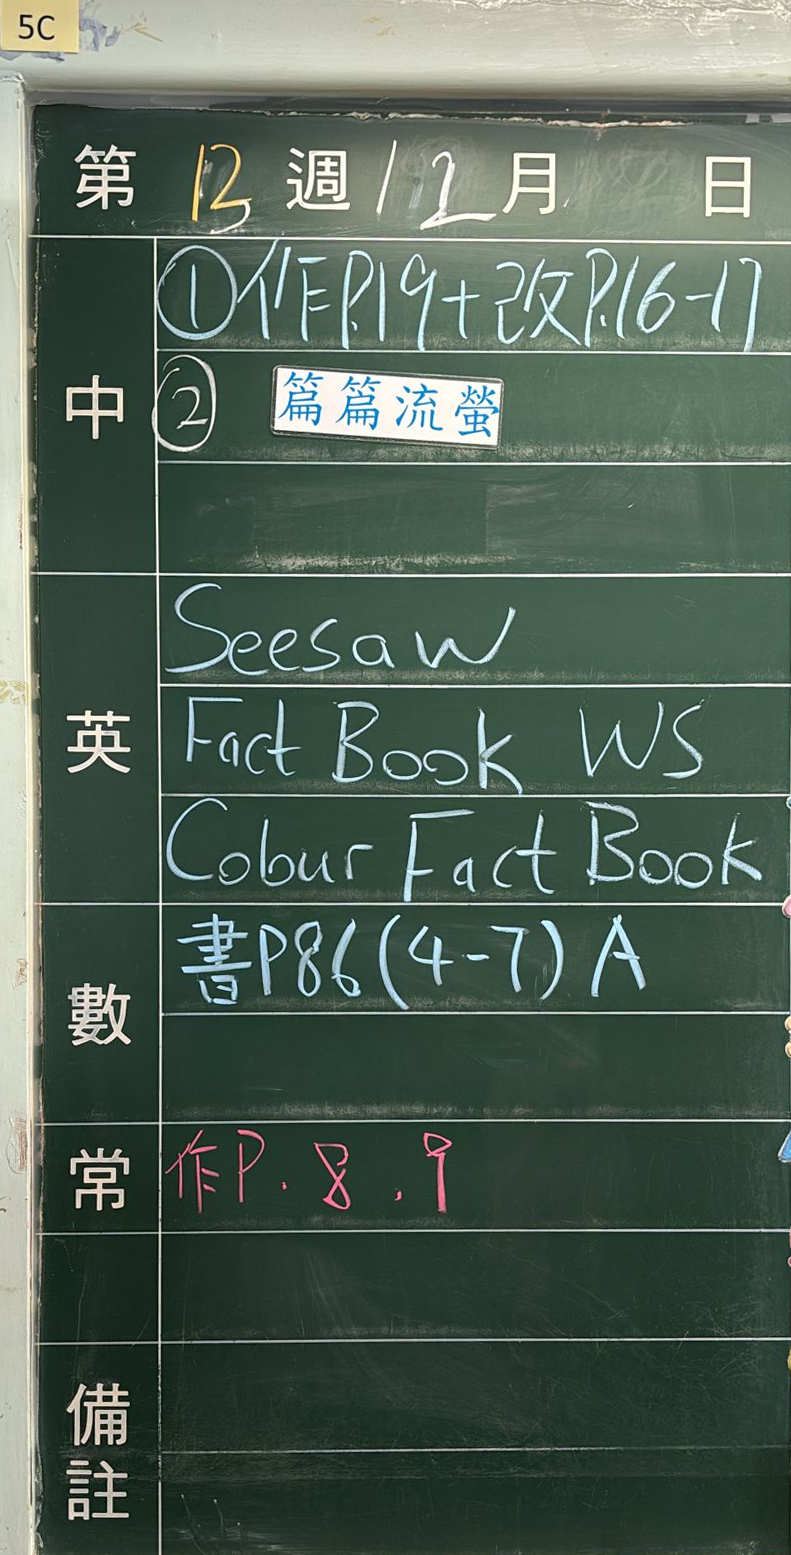 5C
第 13 週 12 月 日
中
① 作P.19+改P.16-17
② 篇篇流螢
英
Seesaw
Fact Book WS
Colour Fact Book
數
書P86(4-7)A
常
作P.8,9
備註